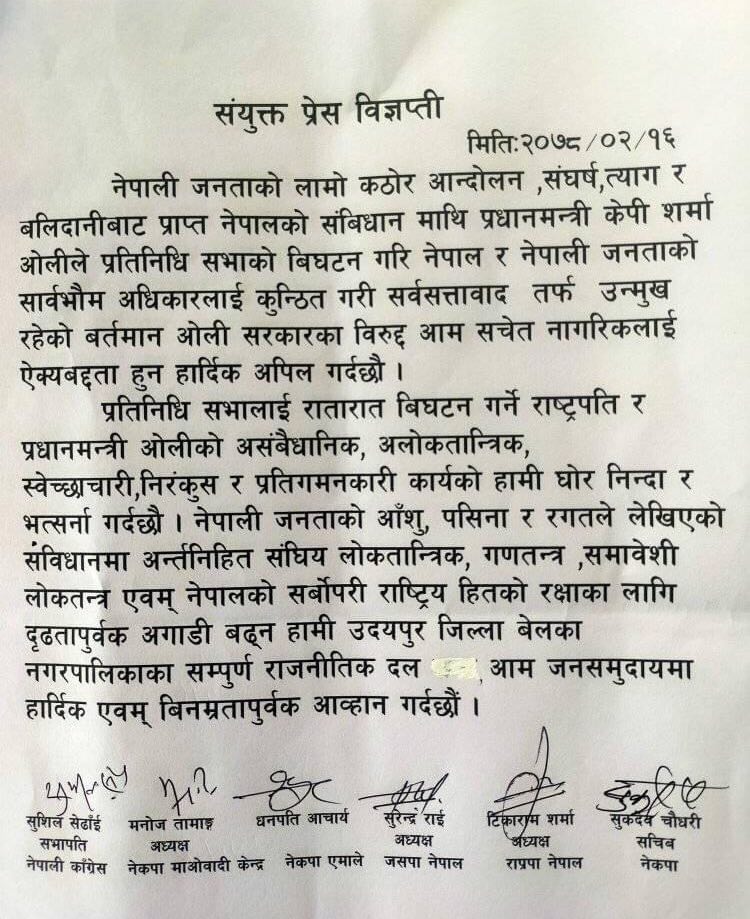 संयुक्त प्रेस विज्ञप्ती
मिति:२०७८/०२/१६
नेपाली जनताको लामो कठोर आन्दोलन ,संघर्ष,त्याग र
बलिदानीबाट प्राप्त नेपालको संबिधान माथि प्रधानमन्त्री केपी शर्मा
ओलीले प्रतिनिधि सभाको बिघटन गरि नेपाल र नेपाली जनताको
सार्वभौम अधिकारलाई कुन्ठित गरी सर्वसत्तावाद तर्फ उन्मुख
रहेको बर्तमान ओली सरकारका विरुद्द आम सचेत नागरिकलाई
ऐक्यबद्दता हुन हार्दिक अपिल गर्दछौ ।
प्रतिनिधि सभालाई रातारात बिघटन गर्ने राष्ट्रपति र
प्रधानमन्त्री ओलीको असंबैधानिक, अलोकतान्त्रिक,
स्वेच्छाचारी,निरंकुस र प्रतिगमनकारी कार्यको हामी घोर निन्दा र
भत्सर्ना गर्दछौ । नेपाली जनताको आँशु, पसिना र रगतले लेखिएको
संविधानमा अर्न्तनिहित संघिय लोकतान्त्रिक, गणतन्त्र ,समावेशी
लोकतन्त्र एवम् नेपालको सर्बोपरी राष्ट्रिय हितको रक्षाका लागि
दृढतापुर्वक अगाडी बढ्न हामी उदयपुर जिल्ला बेलका
नगरपालिकाका सम्पुर्ण राजनीतिक दल , आम जनसमुदायमा
हार्दिक एवम् बिनम्रतापुर्वक आव्हान गर्दछौं ।
सुशिल सेढाँई मनोज तामाङ्ग धनपति आचार्य सुरेन्द्र राई टिकाराम शर्मा सुकदेव चौधरी
सभापति अध्यक्ष अध्यक्ष अध्यक्ष सचिब
नेपाली काँग्रेस नेकपा माओवादी केन्द्र नेकपा एमाले जसपा नेपाल राप्रपा नेपाल नेकपा